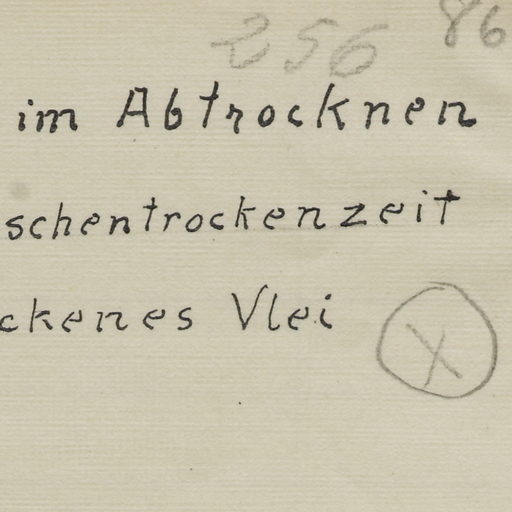 256 86
im Abtrocknen
schentrockenzeit
ckenes Vlei
X